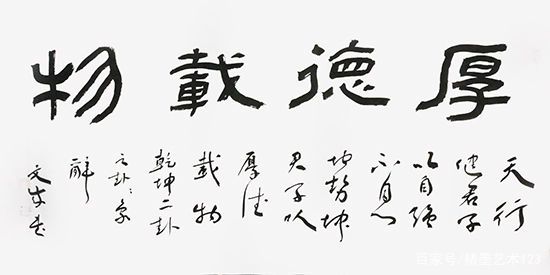 厚德載物
天行
健君子
以自强
不息
地势坤
君子以
厚德
載物
乾坤二卦
之卦之象
辭
百家号/墨艺术123